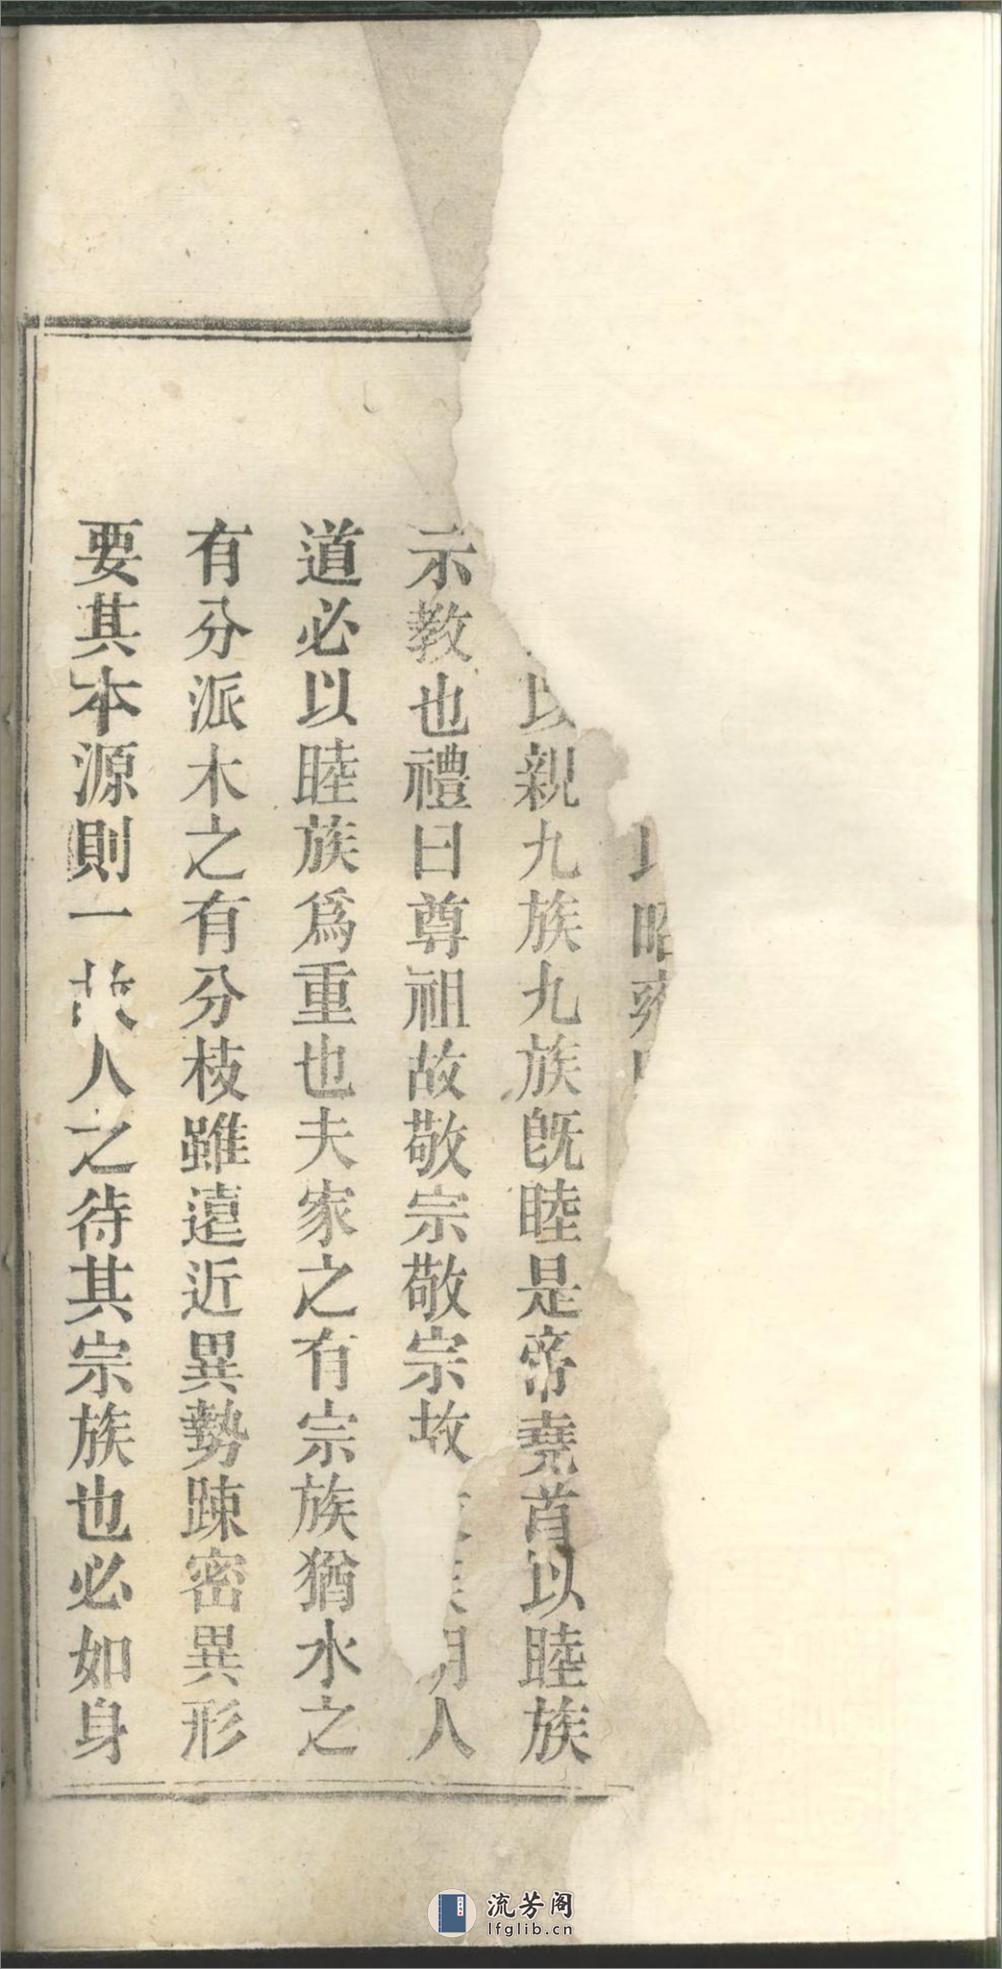 昭雍
以親九族九族既睦是帝堯首以睦族
示教也禮曰尊祖故敬宗敬宗故族明人
道必以睦族為重也夫家之有宗族猶水之
有分派木之有分枝雖遠近異勢踈密異形
要其本源則一故人之待其宗族也必如身
流芳阁
lfglib.cn